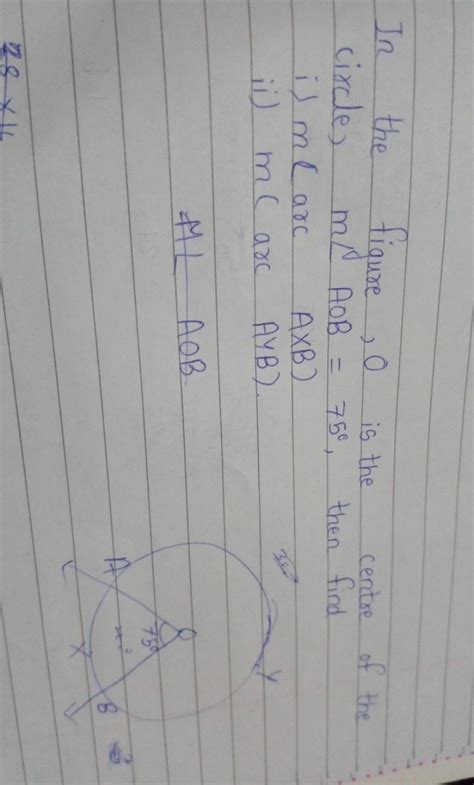 In the figure, O is the centre of the
circle, m∠AOB = 75°, then find
i) m(arc AXB)
ii) m(arc AYB).
M∠ AOB
Y
O
75°
A
X
B